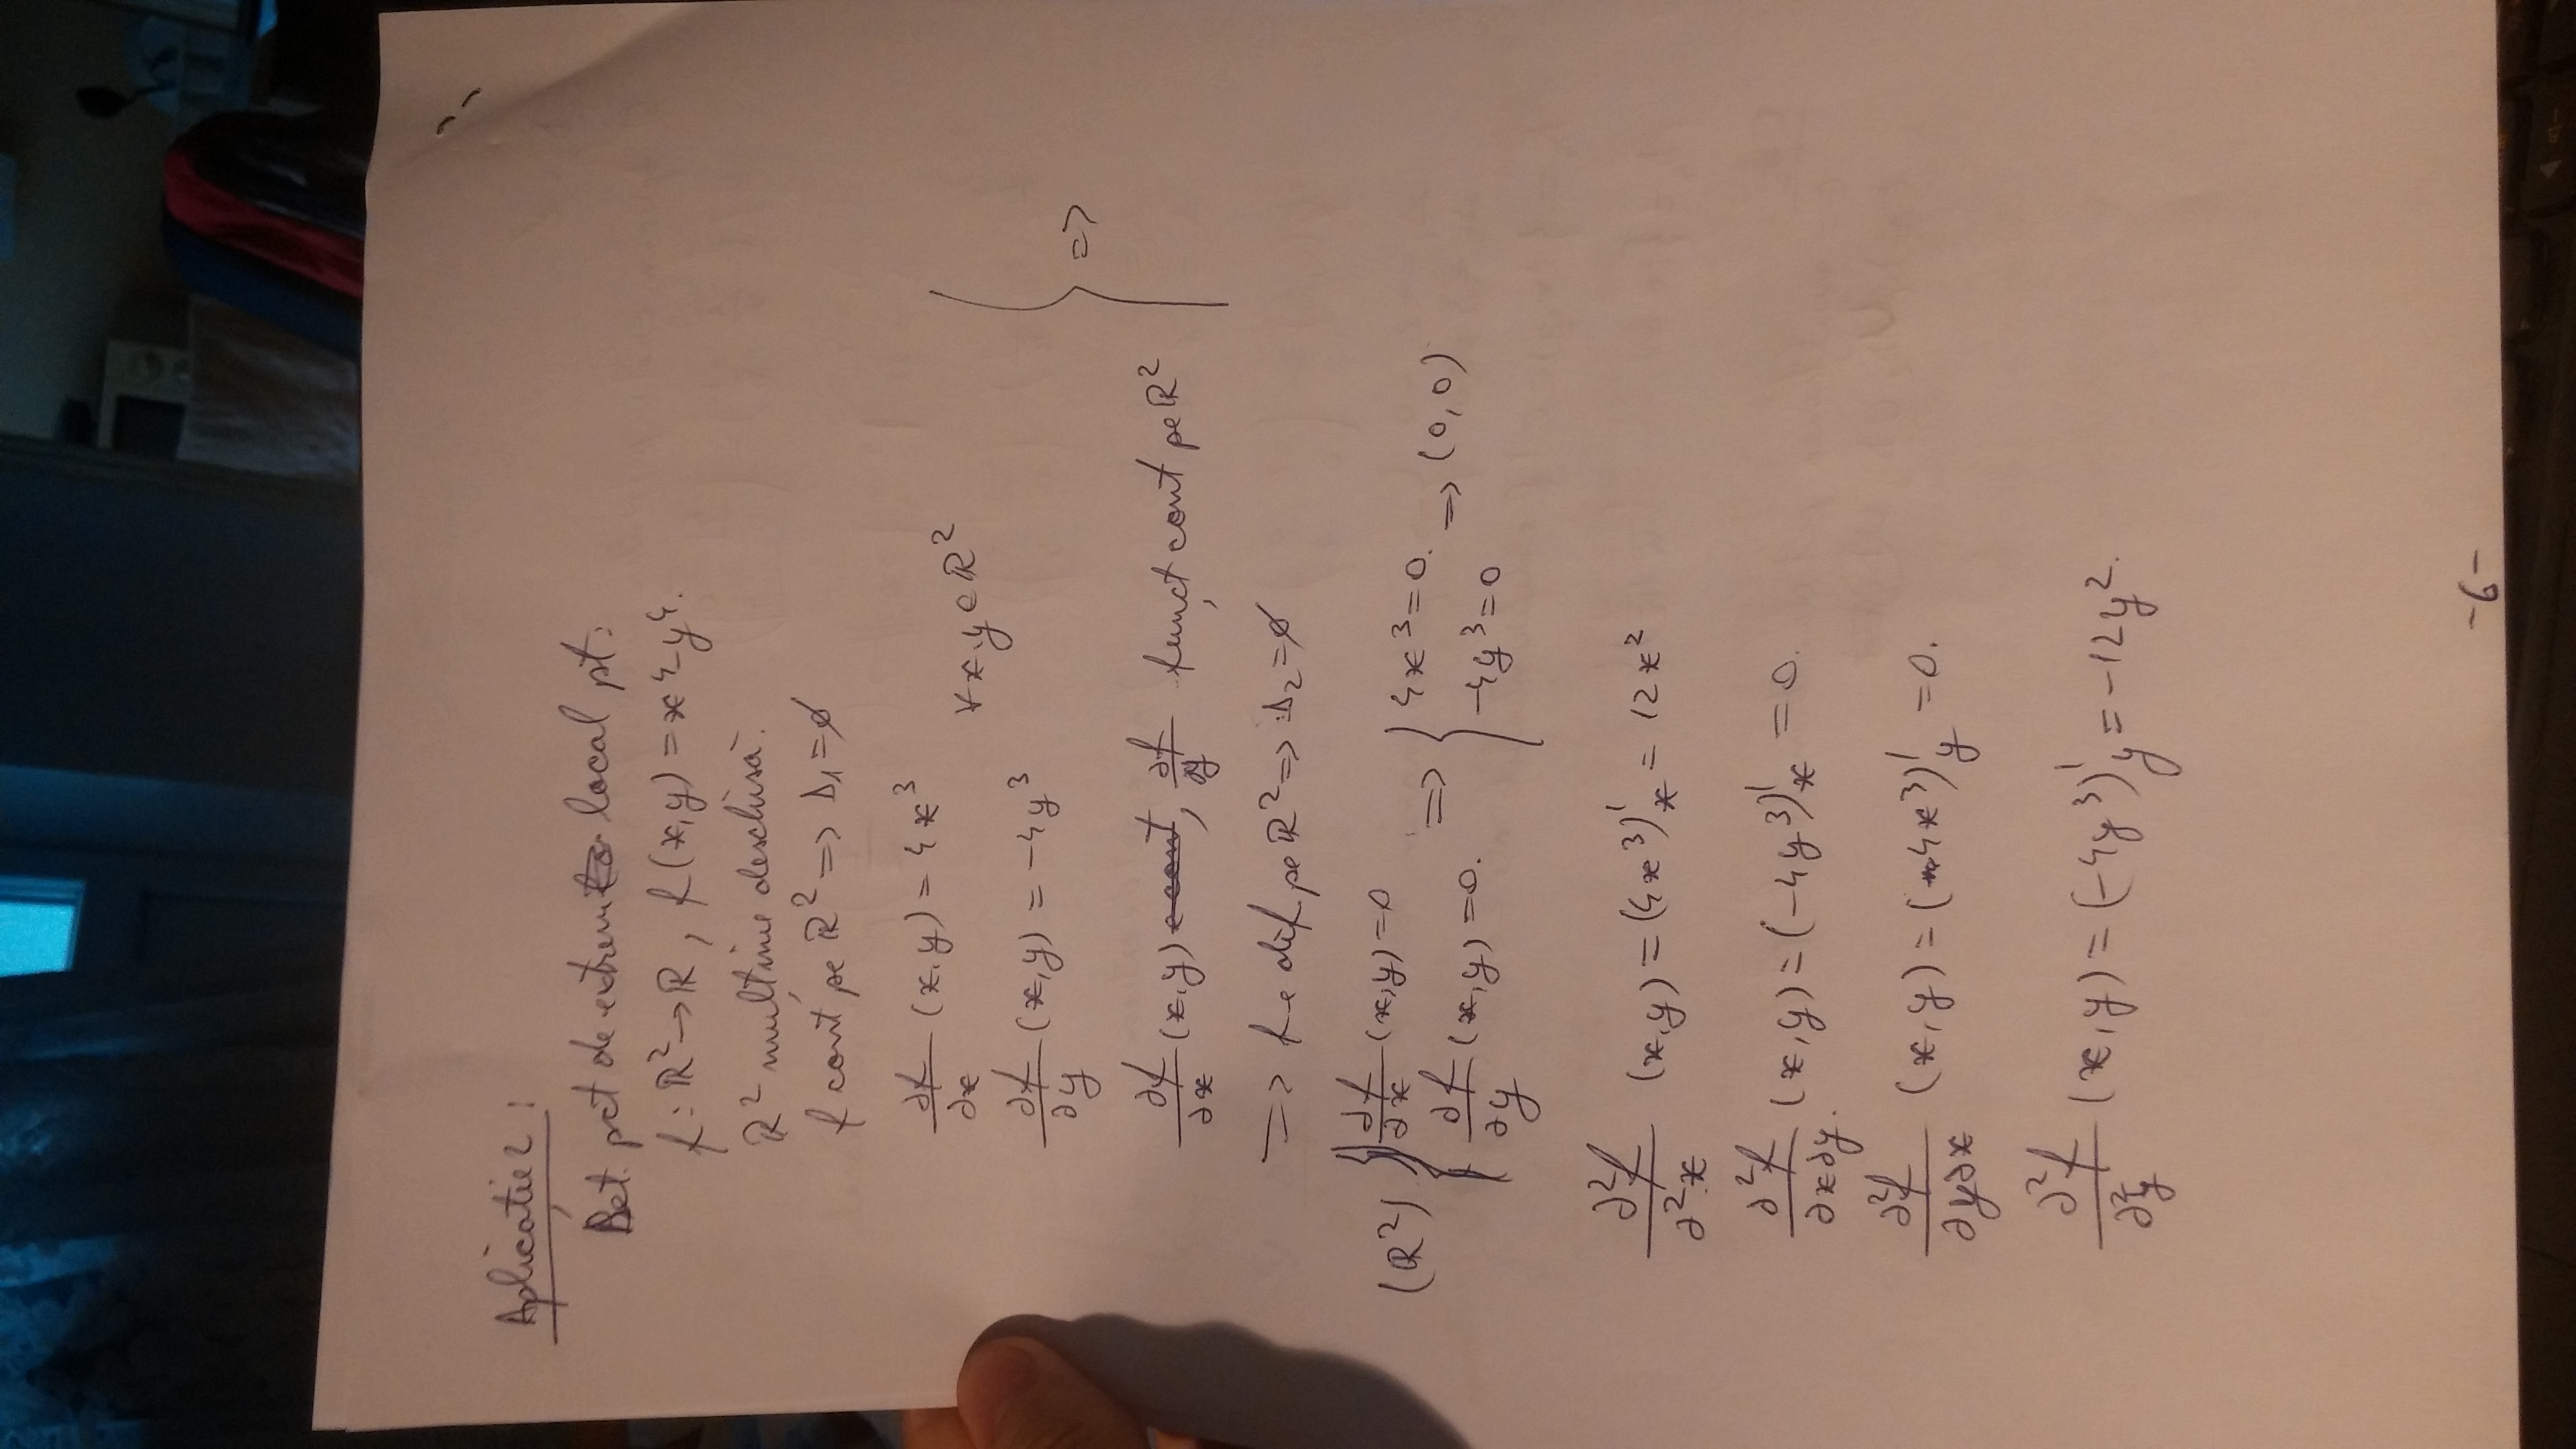 Aplicație 2:
Det. pct de extrem local pt:
f: ℝ² → ℝ, f(x,y) = x⁴-y⁴.
ℝ² mulțime deschisă.
f cont pe ℝ² => Δ₁ = ∅
∂f/∂x (x,y) = 4x³
∀x,y∈ℝ²
∂f/∂y (x,y) = -4y³
∂f/∂x (x,y) e cont, ∂f/∂y funcț cont pe ℝ² } =>
=> f e dif pe ℝ² => Δ₂ = ∅
(ℝ²) { ∂f/∂x (x,y) = 0 ∂f/∂y (x,y) = 0. => { 4x³ = 0. -4y³ = 0 => (0,0)
∂²f/∂²x (x,y) = (4x³)'ₓ = 12x²
∂²f/∂x∂y. (x,y) = (-4y³)'ₓ = 0.
∂²f/∂y∂x (x,y) = (4x³)'y = 0.
∂²f/∂²y (x,y) = (-4y³)'y = -12y².
-6-